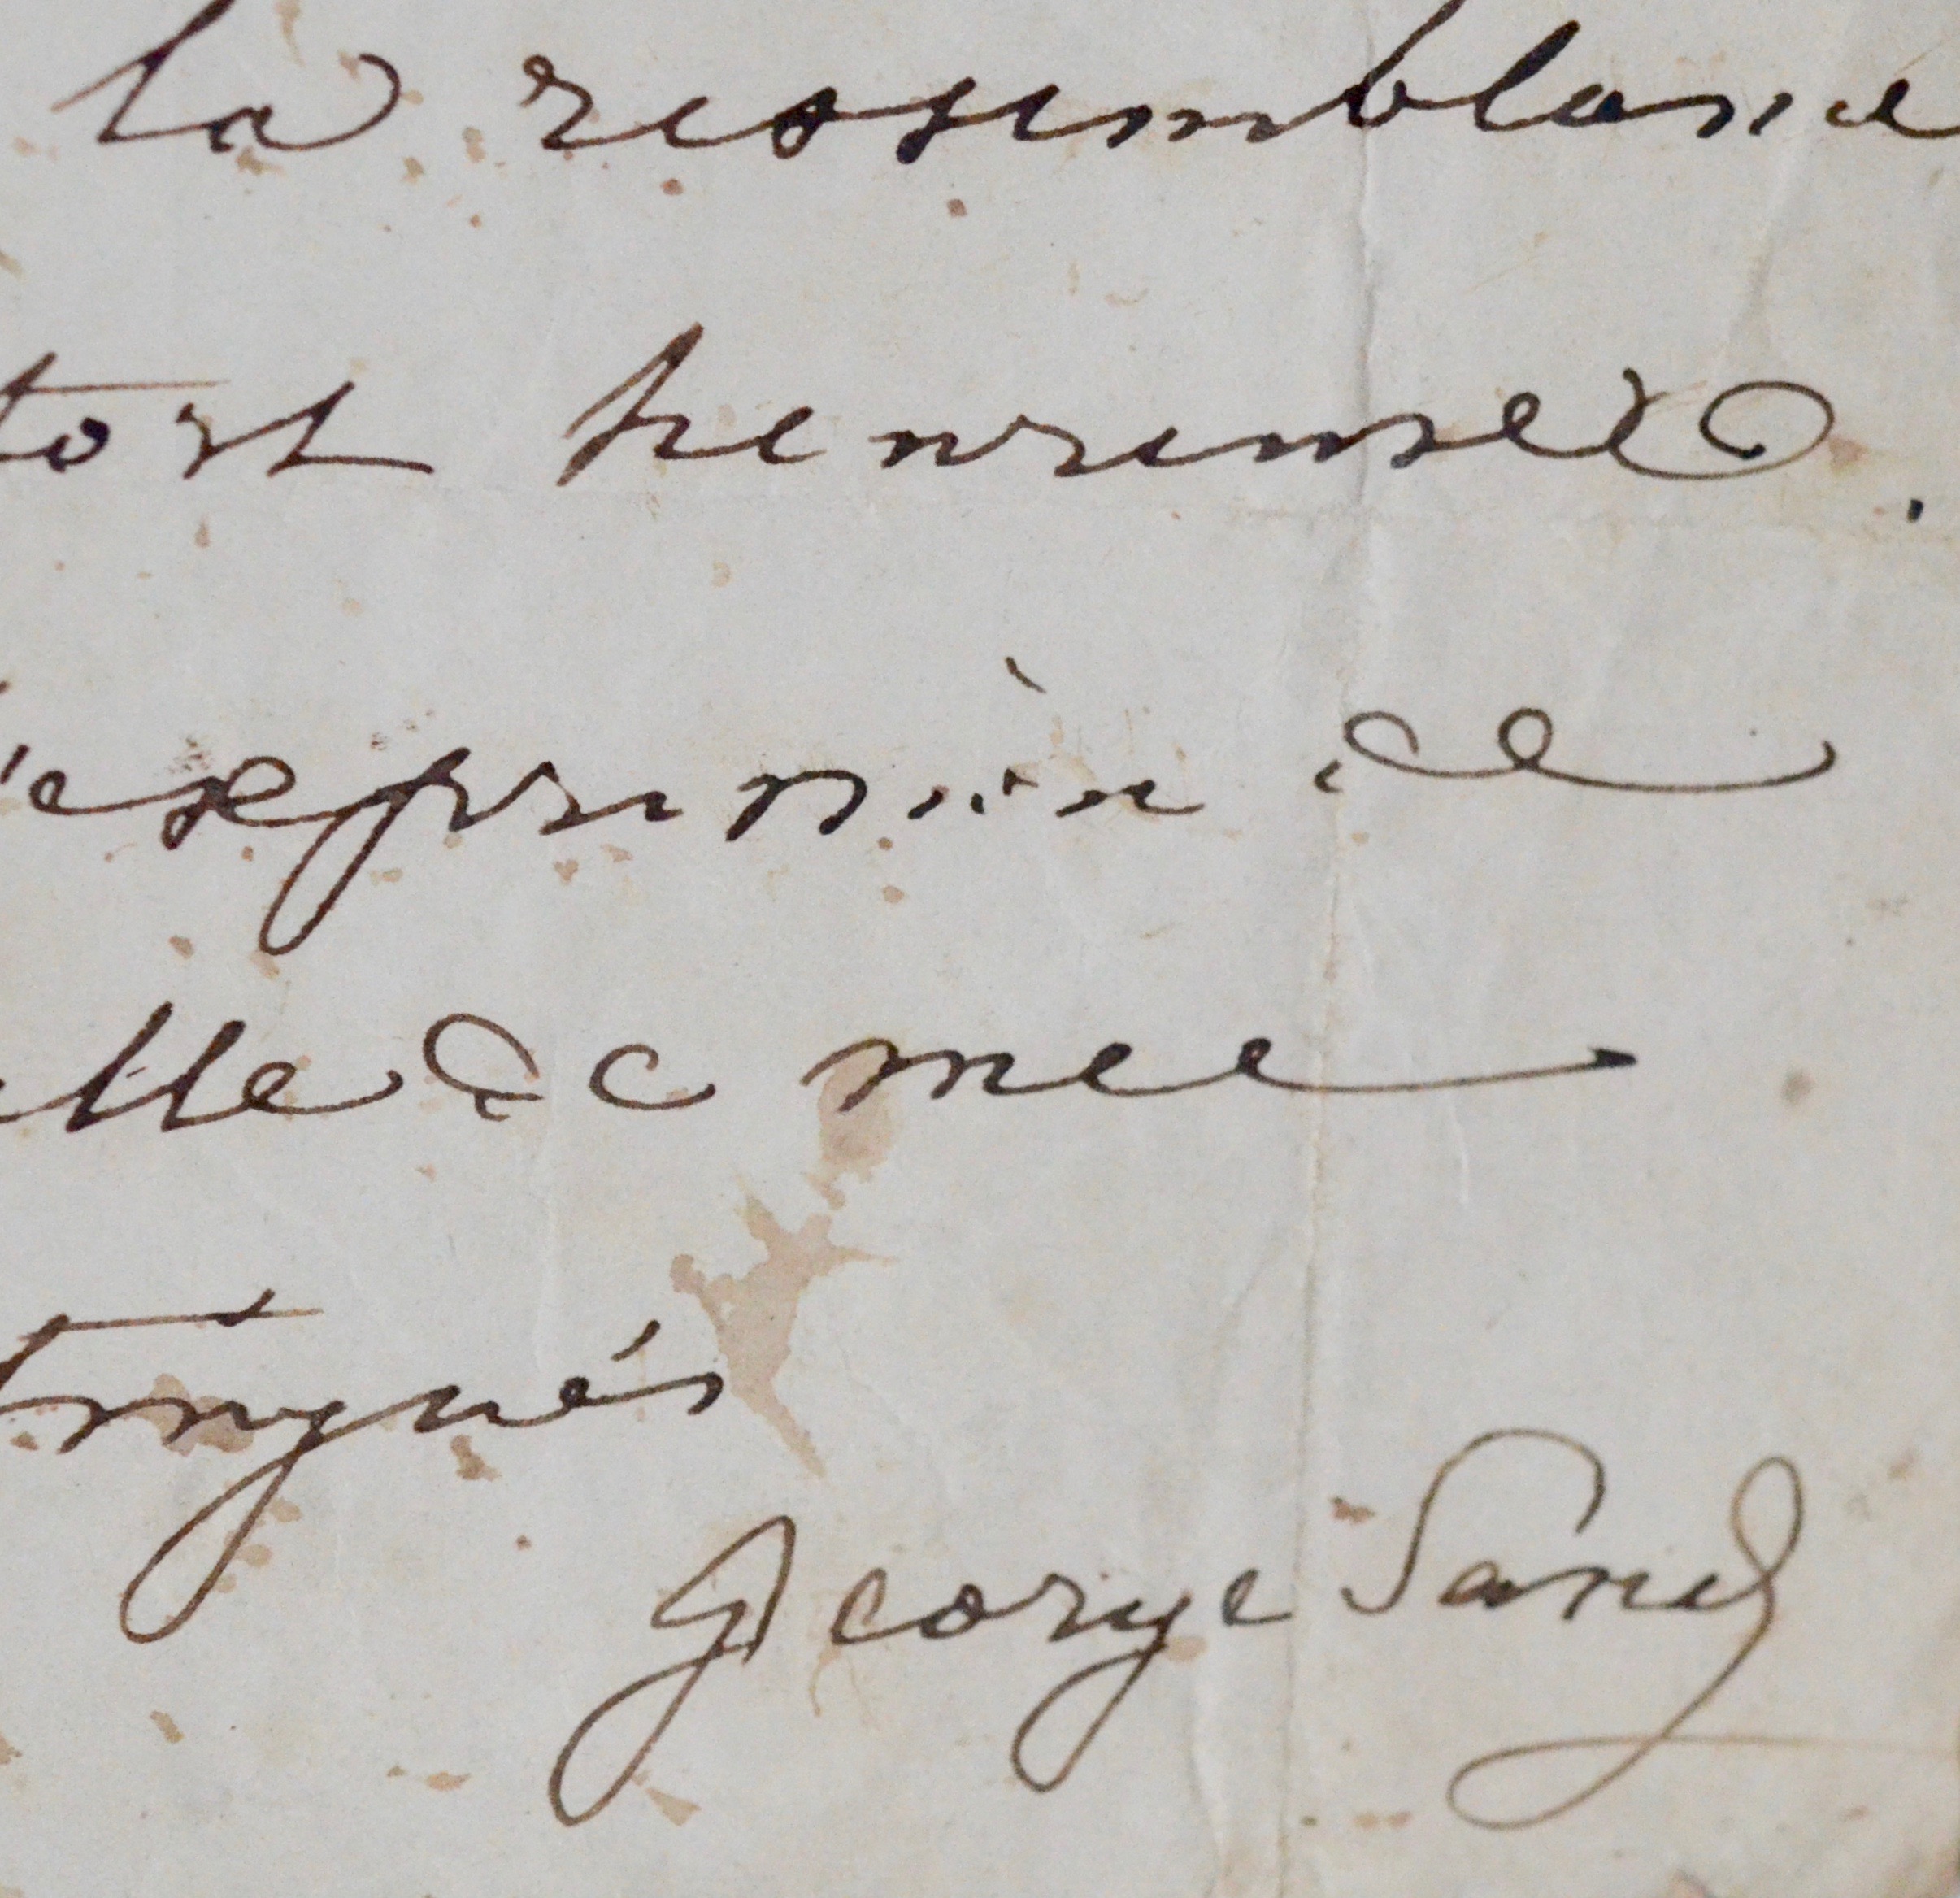 la ressemblance
tort heureused.
l'expression de
elle de mee
tingués
George Sand